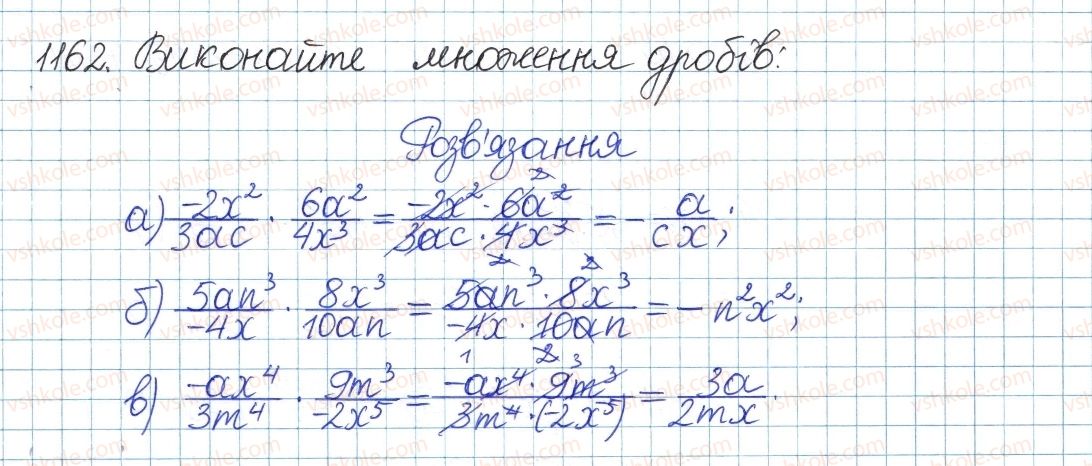 1162. Виконайте множення дробів:
Розв'язання
а) \frac{-2x^2}{3ac} · \frac{6a^2}{4x^3} = \frac{-2x^2 · 6a^2}{3ac · 4x^3} = -\frac{a}{cx};
б) \frac{5an^3}{-4x} · \frac{8x^3}{10an} = \frac{5an^3 · 8x^3}{-4x · 10an} = -n^2x^2;
в) \frac{-ax^4}{3m^4} · \frac{9m^3}{-2x^5} = \frac{-ax^4 · 9m^3}{3m^4 · (-2x^5)} = \frac{3a}{2mx}.